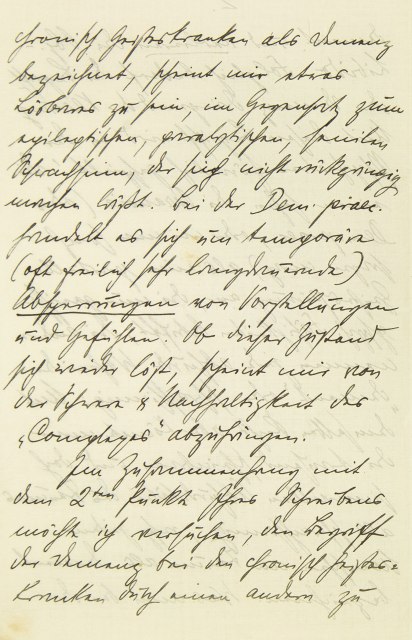 chronisch Geisteskranken als Demenz
bezeichnet, scheint mir etwas
Lösbares zu sein, im Gegensatz zum
epileptischen, paralytischen, senilen
Schwachsinn, der sich nicht rückgängig
machen läßt. Bei der Dem. praec.
handelt es sich um temporäre
(oft freilich sehr langdauernde)
Absperrungen von Vorstellungen
und Gefühlen. Ob dieser Zustand
sich wieder löst, scheint mir von
der Schwere & Nachhaltigkeit des
„Complexes“ abzuhängen.
Im Zusammenhang mit
dem 2ten Punkt Ihres Schreibens
möchte ich versuchen, den Begriff
der Demenz bei den chronisch Geistes=
kranken durch einen andern zu